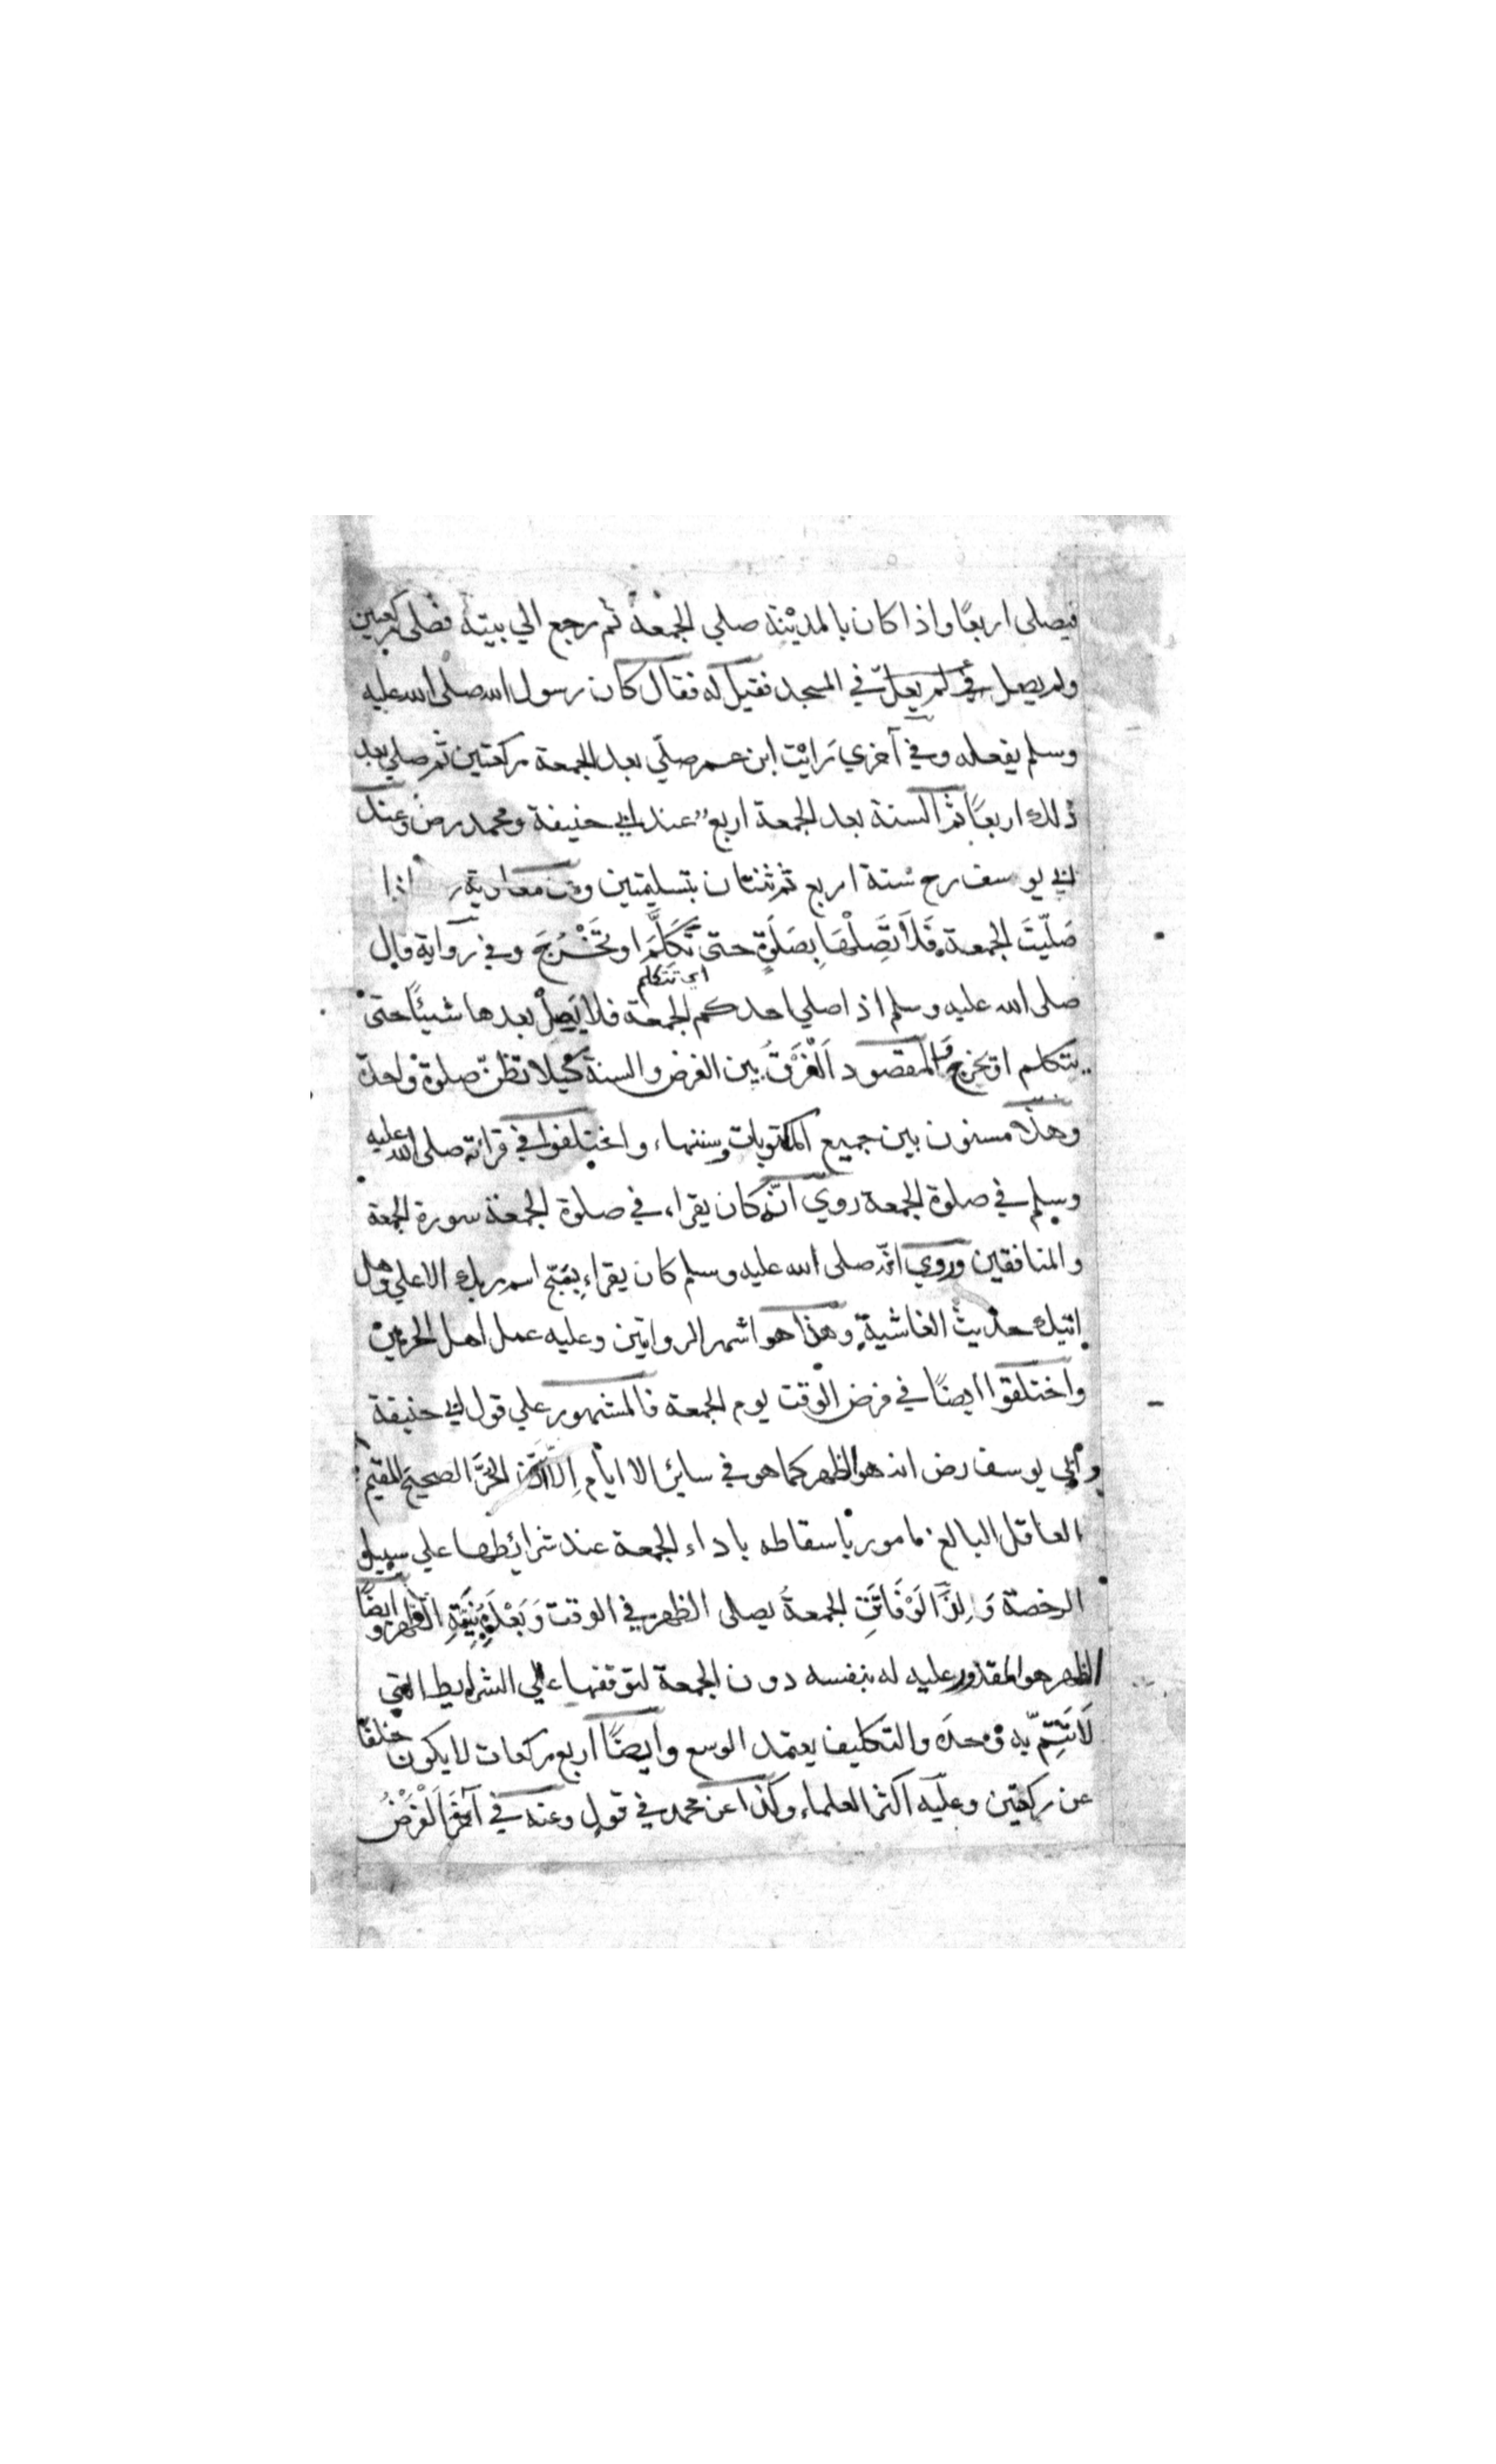 فيصلى اربعًا واذا كان بالمدينة صلي الجمعة ثم رجع الي بيته فصلى ركعتين
ولم يصل في المسجد فقيل له فقال كان رسول الله صلى الله عليه
وسلم يفعله وفي آخري رَايْت ابن عمر صلّي بعد الجمعة ركعتين ثم صلي بعد
ذلك اربعًا ثم السنة بعد الجمعة اربع عند ابي حنيفة ومحمد رض وعند
ابي يوسف رح ستة اربع ثم ثنتان بتسليمتين وعن معاوية ر اذا
صَلّيتَ الجمعة فَلَا تَصِلْهَا بِصَلَوةٍ حتى تَكَلَّمَ او تَخْرُجَ وفي رواية قال
اي تتكلم
صلى الله عليه وسلم اذا صلي احدكم الجمعة فلا يَصِلْ بعدها شيئًا حتى
يتكلم او يخرج والمقصود اَلْفَرْقُ بين الفرض والسنة كيلا تظن صلوة واحدة
وهذا مسنون بين جميع المكتوبات وسننها، واختلفوا في قرائته صلى الله عليه
وسلم في صلوة الجمعة روي انّه كان يقراء في صلوة الجمعة سورة الجمعة
والمنافقين وروي انّه صلى الله عليه وسلم كان يقراء بسبّح اسم ربك الاعلي وهل
اتيك حديث الغاشية وهذا هو اشهر الروايتين وعليه عمل اهل الحرمين
واختلفوا ايضًا في فرض الوقت يوم الجمعة فالمشهور علي قول ابي حنيفة
وابي يوسف رض انه هو الظهر كما هو في سائر الا ايام اِلّا اَنَّ الحُرَّ الصحيح المقيم
العاقل البالغ مامور باسقاطه باداء الجمعة عند شرائطها علي سبيل
الرخصة وَلِذَا لَوْ فَاتَتِ الجمعةُ يصلى الظهر في الوقت وَبَعْدَهُ بِنِيَّةِ الظهر وايضًا
الظهر هو المقدور عليه له بنفسه دون الجمعة لتوقفهاء الي الشرايط التي
لَا تَتِمّ به وحده والتكليف يعتمد الوسع وايضًا اربع ركعات لا يكون خلفًا
عن ركعتين وعليه اكثر العلماء وكذا عن محمد في قول وعنه في آخَرَ اَلْفَرْضُ